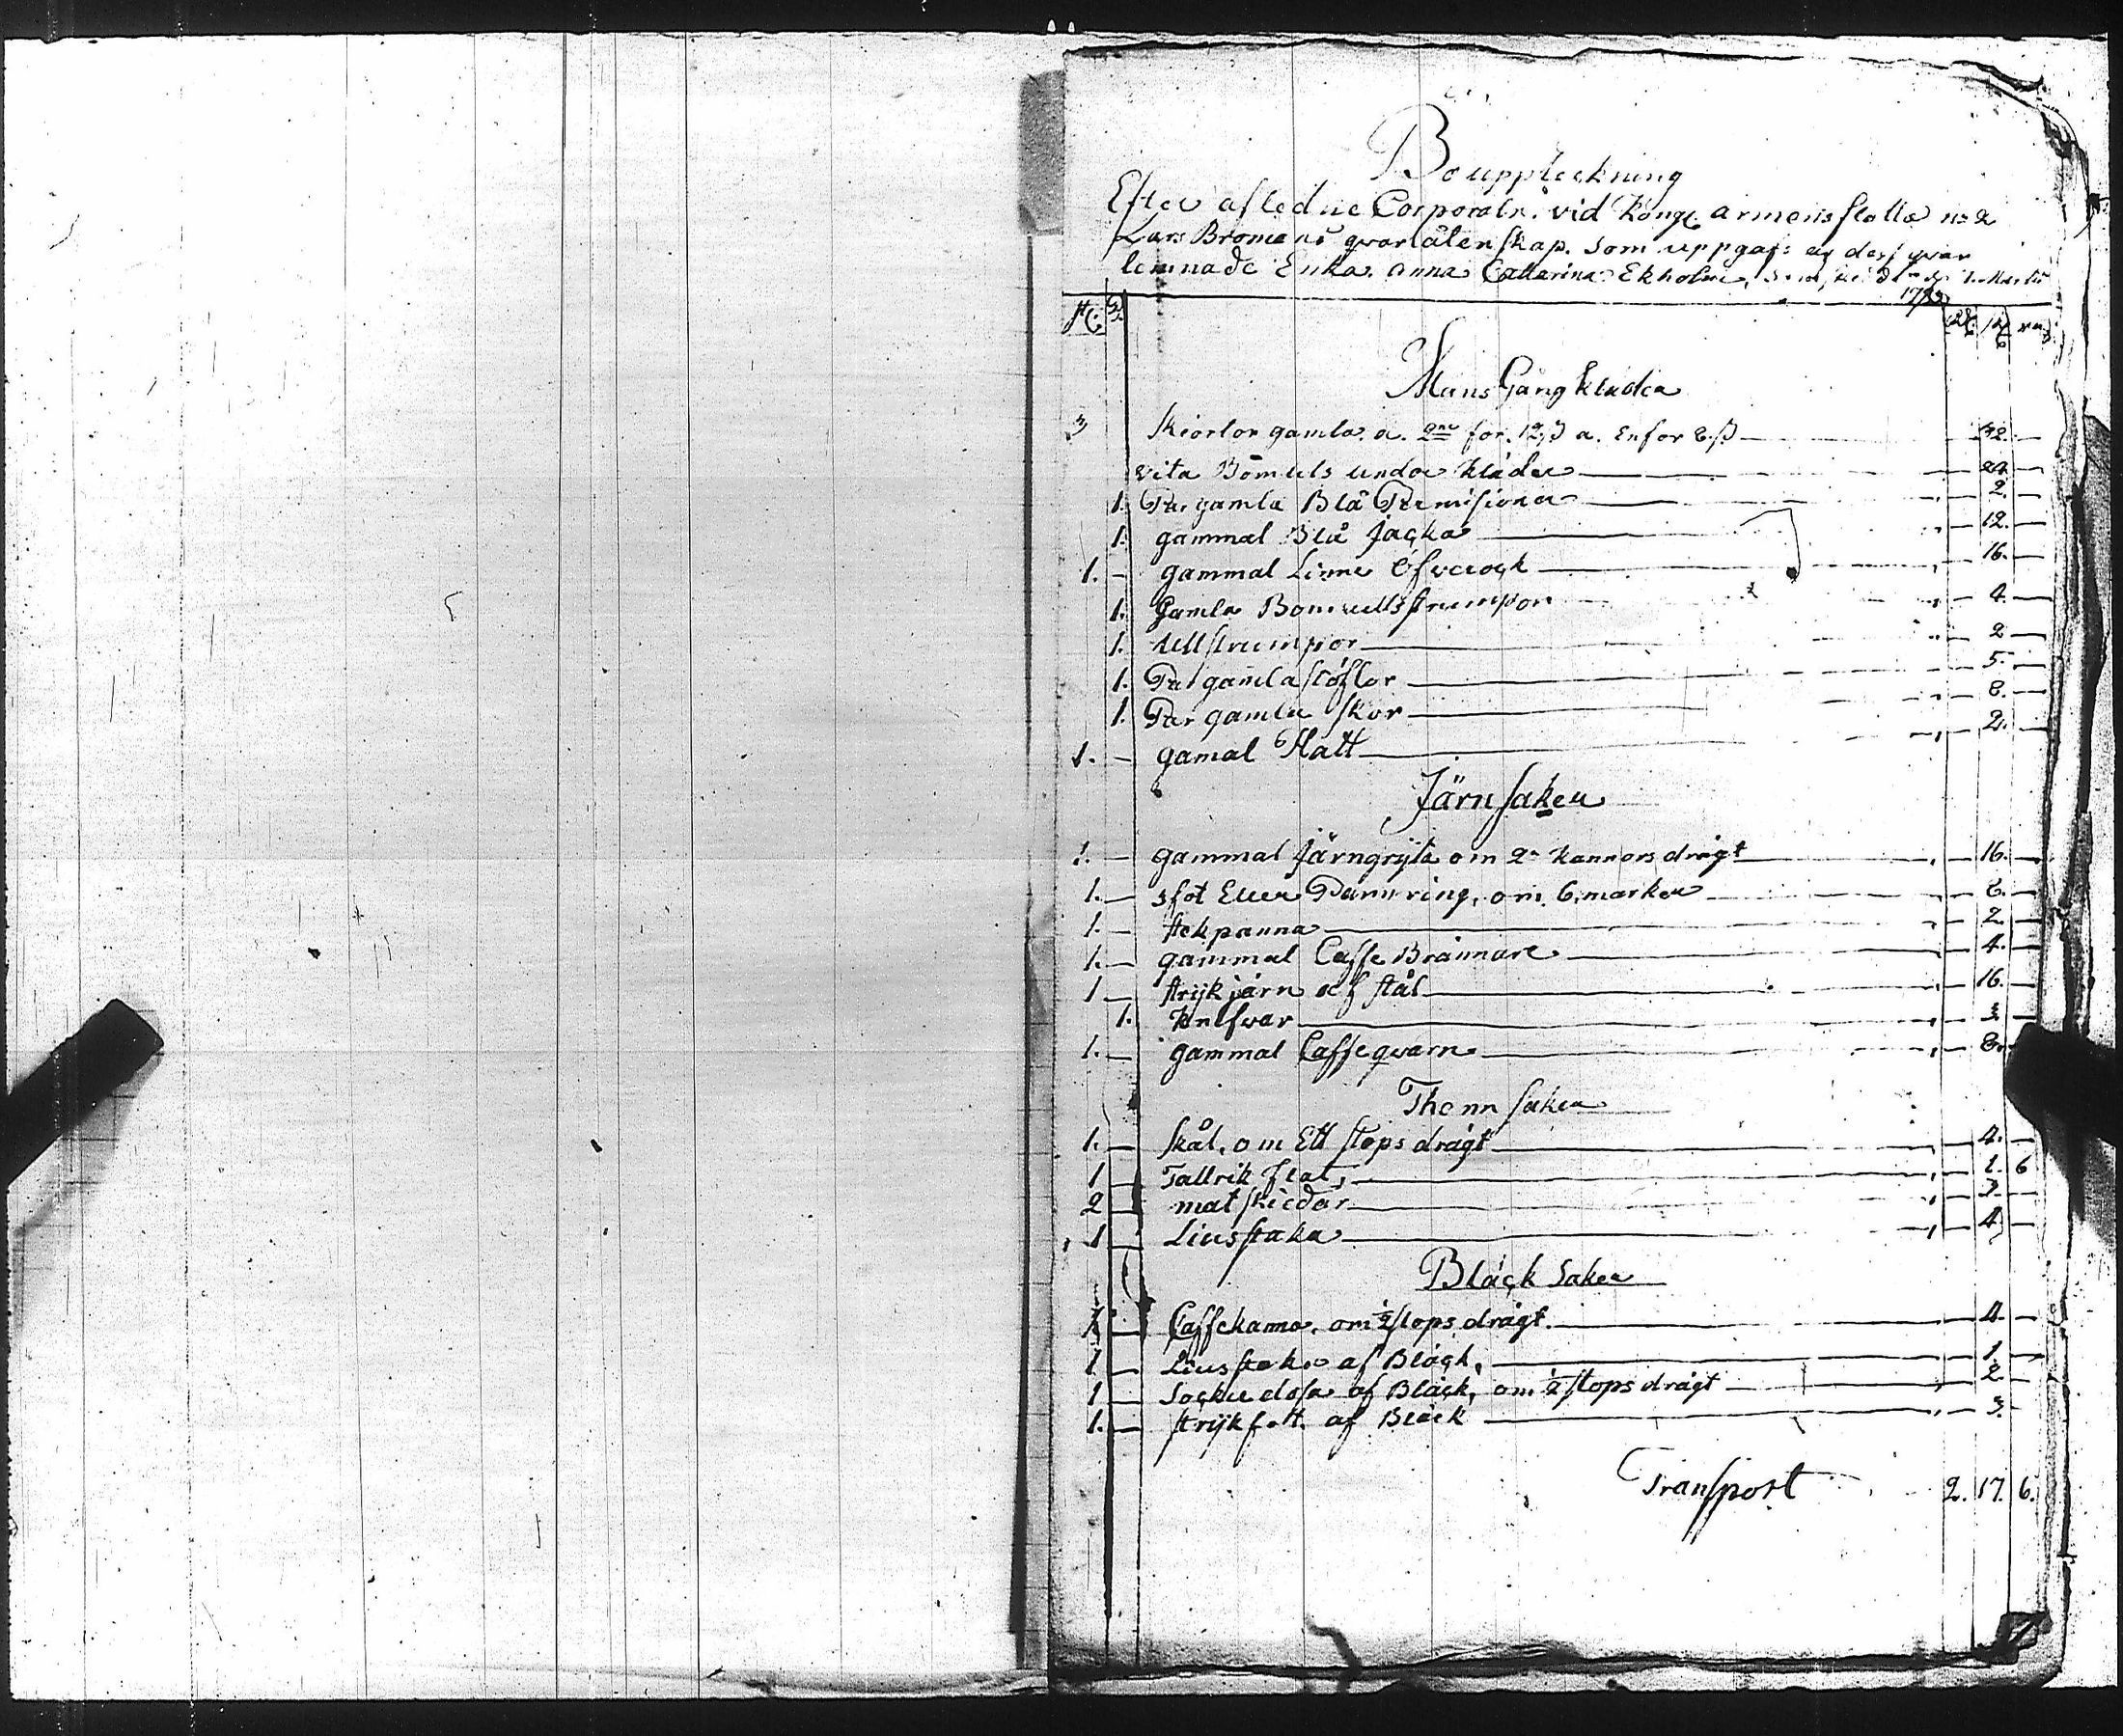 Bouppteckning
Efter afledne Corporaln. vid Kongl. armens flotta no 2
Lars Bromans qvarlåtenskap. som uppgafs ag dess qvar
lemnade Enka. Anna Catterina Ekholm,
St. Pr.
Mans Gång kläder
3 Skiortor gamla. a. 2ne for. 12 ß a. En for 8. ß 32
vita Bomuls under kläder
1. Par gamla Blå Permisioner 2.
1. gammal Blå Jacka 12.
1. gammal Linne Öfverock 16.
1. Gamla Bomullsstrumpor 4.
1. ullstrumpor 2
1. Par gamla stöflor 5.
1. Par gamla skor 8.
1. gamal Hatt 2.
Järn saker
1. gammal Järngryta om 2ne kannors drägt 16.
1. 3fot Eller Pannring, om 6. marker 8.
1. stekpanna 2.
1. gammal Caffe Brännare 4.
1 strykjärn och stål 16.
1. Knifvar 3.
1. gammal Caffeqvarn 8.
Thenn saker
1. Skål, om Ett stops drägt 4.
1 Tallrik flat, 1. 6
2 mat skiedar 3.
1 Liusstaka 4
Bläck Saker
1. Caffekanna, om ½ stops drägt. 4.
1 Liusstake af Bläck, 1
1 Sockerdosa af Bläck, om ½ stops drägt 2
1. strykfatt. af Bläck 3.
Transport 2. 17. 6.